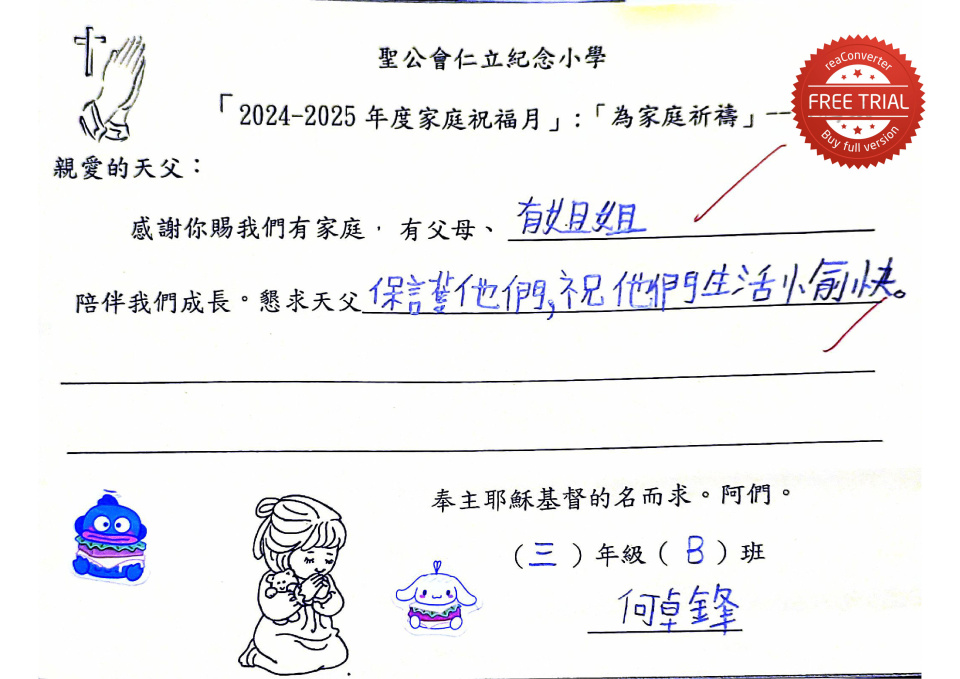 聖公會仁立紀念小學
「2024-2025 年度家庭祝福月」:「為家庭祈禱」--
reaConverter
FREE TRIAL
Buy full version
親愛的天父：
感謝你賜我們有家庭，有父母、有姐姐
陪伴我們成長。懇求天父保護他們,祝他們生活愉快。
奉主耶穌基督的名而求。阿們。
（三）年級（B）班
何卓鋒